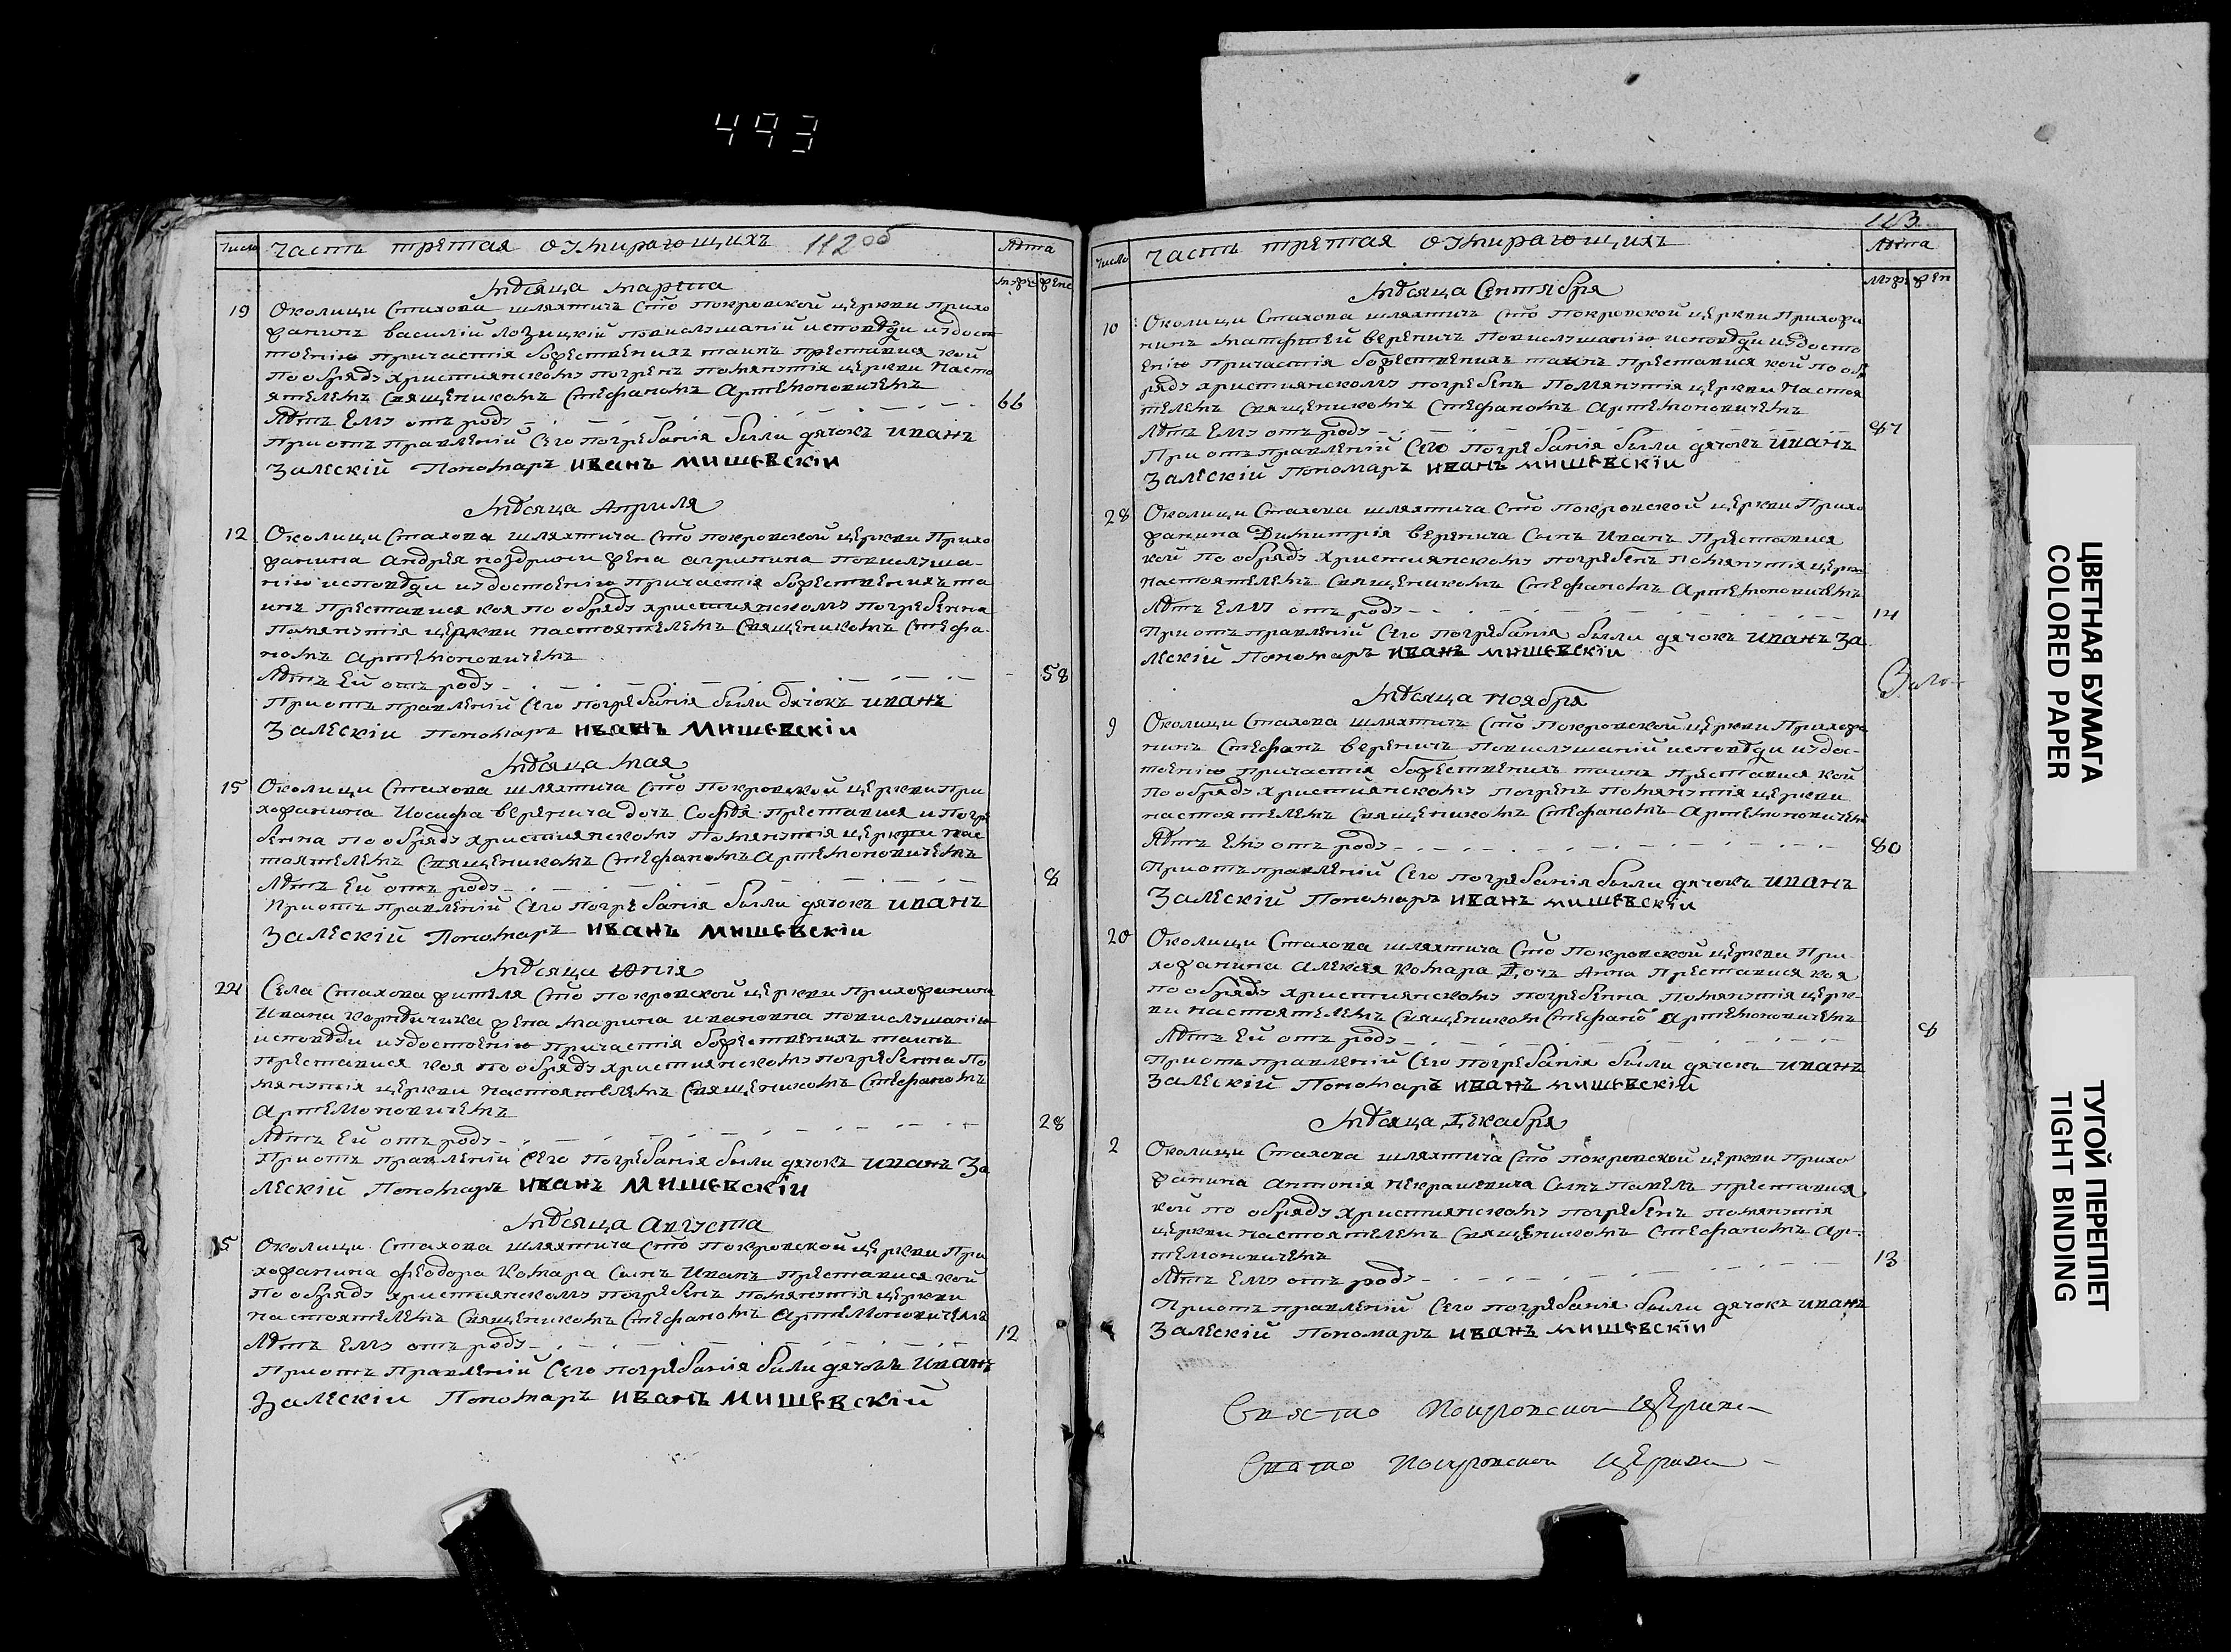 493
112 об
Число
Часть третая оумирающихъ
Лѣта
муж
жен
Мѣсяца Марта
19
Околици Стахова шляхтичъ Сто покровской церкви прихо
жанинъ василій лозицкій повислушаній исповѣди иудост
тоенію причастія божественихъ таинъ преставися кой
по обряду християнскому погренъ помянутія церкви насто
ятелемъ Священикомъ Стефаномъ Артемоновичемъ
Лѣтъ Ему отъ роду
66
Приотъправленій Сего погребанія были дячокъ иванъ
Залескій Пономаръ иванъ мишевскіи
Мѣсяца Априля
12
Околици Стахова шляхтича Сто покровской церкви Прихо
жанина андрея поздрини жена агрипина повислуша-
нію исповѣди иудостоенію причастія божественихъ та
инъ преставися коя по обряду християнскому погребенна
помянутія церкви настоятелемъ Священикомъ Стефа-
номъ артемоновичемъ
Лѣтъ Ей отъ роду
58
Приотъправленій Сего погребанія были дячокъ иванъ
Залескіи пономаръ иванъ мишевскіи
Мѣсяца мая
15
Околици Стахова шляхтича Сто покровской церкви При
хожанина Иосифа веренича дочъ Софѣя преставися и погре
бенна по обряду християнскому помянутія церкви нас
тоятелемъ Священикомъ Стефаномъ Артемоновичемъ
Лѣтъ Ей отъ роду
8
Приотъправленій Сего погребанія были дячокъ иванъ
Залескій Пономаръ иванъ мишевскіи
Мѣсяца юнія
22
Села Стахова жителя Сто покровской церкви Прихожанина
Ивана жена марина ивановна повислушанію
исповѣди иудостоенію причастія божественихъ таинъ
Преставися коя по обряду християнскому погребенна по
мянутія церкви настоятелемъ Священикомъ Стефаномъ
Артемоновичемъ
Лѣтъ Ей отъ роду
28
Приотъ правленіи Сего погребанія были дячокъ иванъ За
лескій Пономаръ иванъ мишевскіи
Мѣсяца августа
15
Околици Стахова шляхтича Сто покровской церкви При
хожанина феодора комара Сынъ Иванъ преставися кой
по обряду християнскому погребенъ помянутія церкви
настоятелемъ Священикомъ Стефаномъ Артемоновичемъ
Лѣтъ Ему отъ роду
12
Приотъ Правленій Сего погребанія были дячокъ иванъ
Залескіи Пономаръ иванъ мишевскій
113
Число
Часть третая оумирающихъ
Лѣта
муж
жен
Мѣсяца Сентября
10
Околици Стахова шляхтичъ Сто покровской церкви Прихожа
нинъ матфтей вереничъ Повислушанію исповѣди иудосто
енію причастія божественихъ таинъ преставися кой по об
ряду християнскому погребенъ помянутія церкви настоя
телемъ Священикомъ Стефаномъ артемоновичемъ
Лѣтъ Ему отъ роду
87
Приотъправленій Сего погребанія были дячокъ иванъ
Залескій Пономаръ иванъ мишевскіи
28
Околици Стахова шляхтича Сто покровской церкви Прихо
жанина Димитрія веренича Сынъ Иванъ Преставися
кой по обряду християнскому погребенъ помянутія церкви
настоятелемъ Священикомъ Стефаномъ Артемоновичемъ
Лѣтъ Ему отъ роду
14
Приотъправленій Сего погребанія были дячокъ иванъ За
лескій Пономаръ иванъ мишевскіи
Мѣсяца ноября
9
Околици Стахова шляхтичъ Сто Покровской церкви Прихожа
нинъ Стефанъ вереничъ повислушаній исповѣди иудос-
тоенію причастія божественихъ таинъ преставися кой
по обряду християнскому погренъ помянутія церкви
настоятелемъ Священикомъ Стефаномъ Артемоновичемъ
Лѣтъ Ему отъ роду
80
Приотъправленій Сего погребанія были дячокъ иванъ
Залескій Пономаръ иванъ мишевскіи
20
Околици Стахова шляхтича Сто покровской церкви При-
хожанина алексея комара Дочъ Анна Преставися коя
по обряду християнскому погребенна помянутія церк-
ви настоятелемъ Священиком Стефано артемоновичемъ
Лѣтъ Ей отъ роду
8
Приотъправленій Сего погребанія были дячокъ иванъ
Залескій Пономаръ иванъ мишевскій
Мѣсяца Декабря
2
Околици Стахова шляхтича Сто покровской церкви Прихо
жанина антонія некрашевича Сынъ Павелъ преставися
кой по обряду християнскому погребенъ помянутія
церкви настоятелемъ Священикомъ Стефаномъ Ар-
темоновичемъ
Лѣтъ Ему отъ роду
13
Приотъправленій Сего погребанія были дячокъ иванъ
Залескій Пономаръ иванъ мишевскіи
Свясто Покровской Церкви
Свято Покровской церкви
ЦВЕТНАЯ БУМАГА
COLORED PAPER
ТУГОЙ ПЕРЕПЛЕТ
TIGHT BINDING